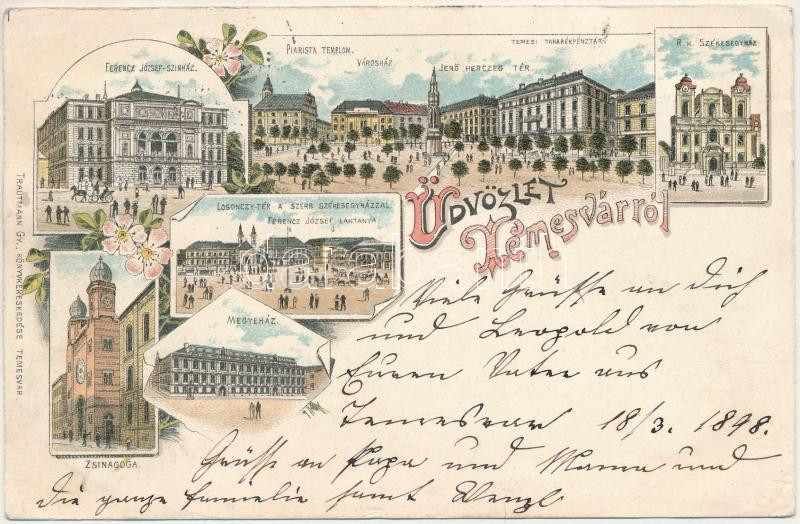 FERENCZ JÓZSEF-SZINHÁZ.
PIARISTA TEMPLOM.
VÁROSHÁZ.
JENŐ HERCZEG TÉR.
TEMESI TAKARÉKPÉNZTÁR.
R. K. SZÉKESEGYHÁZ
ÜDVÖZLET
Temesvárról
LOSONCZY-TÉR A SZERB SZÉKESEGYHÁZZAL
FERENCZ JÓZSEF LAKTANYA.
MEGYEHÁZ.
ZSINAGÓGA.
TRAUTMANN GY., KÖNYVKERESKEDÉSE TEMESVÁR.
Viele Grüsse an Dich
und Leopold von
Euren Vater aus
Temesvar 18/3. 1898.
Grüsse an Papa und Mama und
die ganze Fammelie samt Wenzl